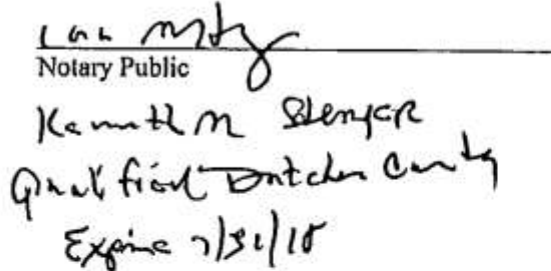 Notary Public
Kenneth M Stenger
Qualified Dutchess County
Expire 7/31/18